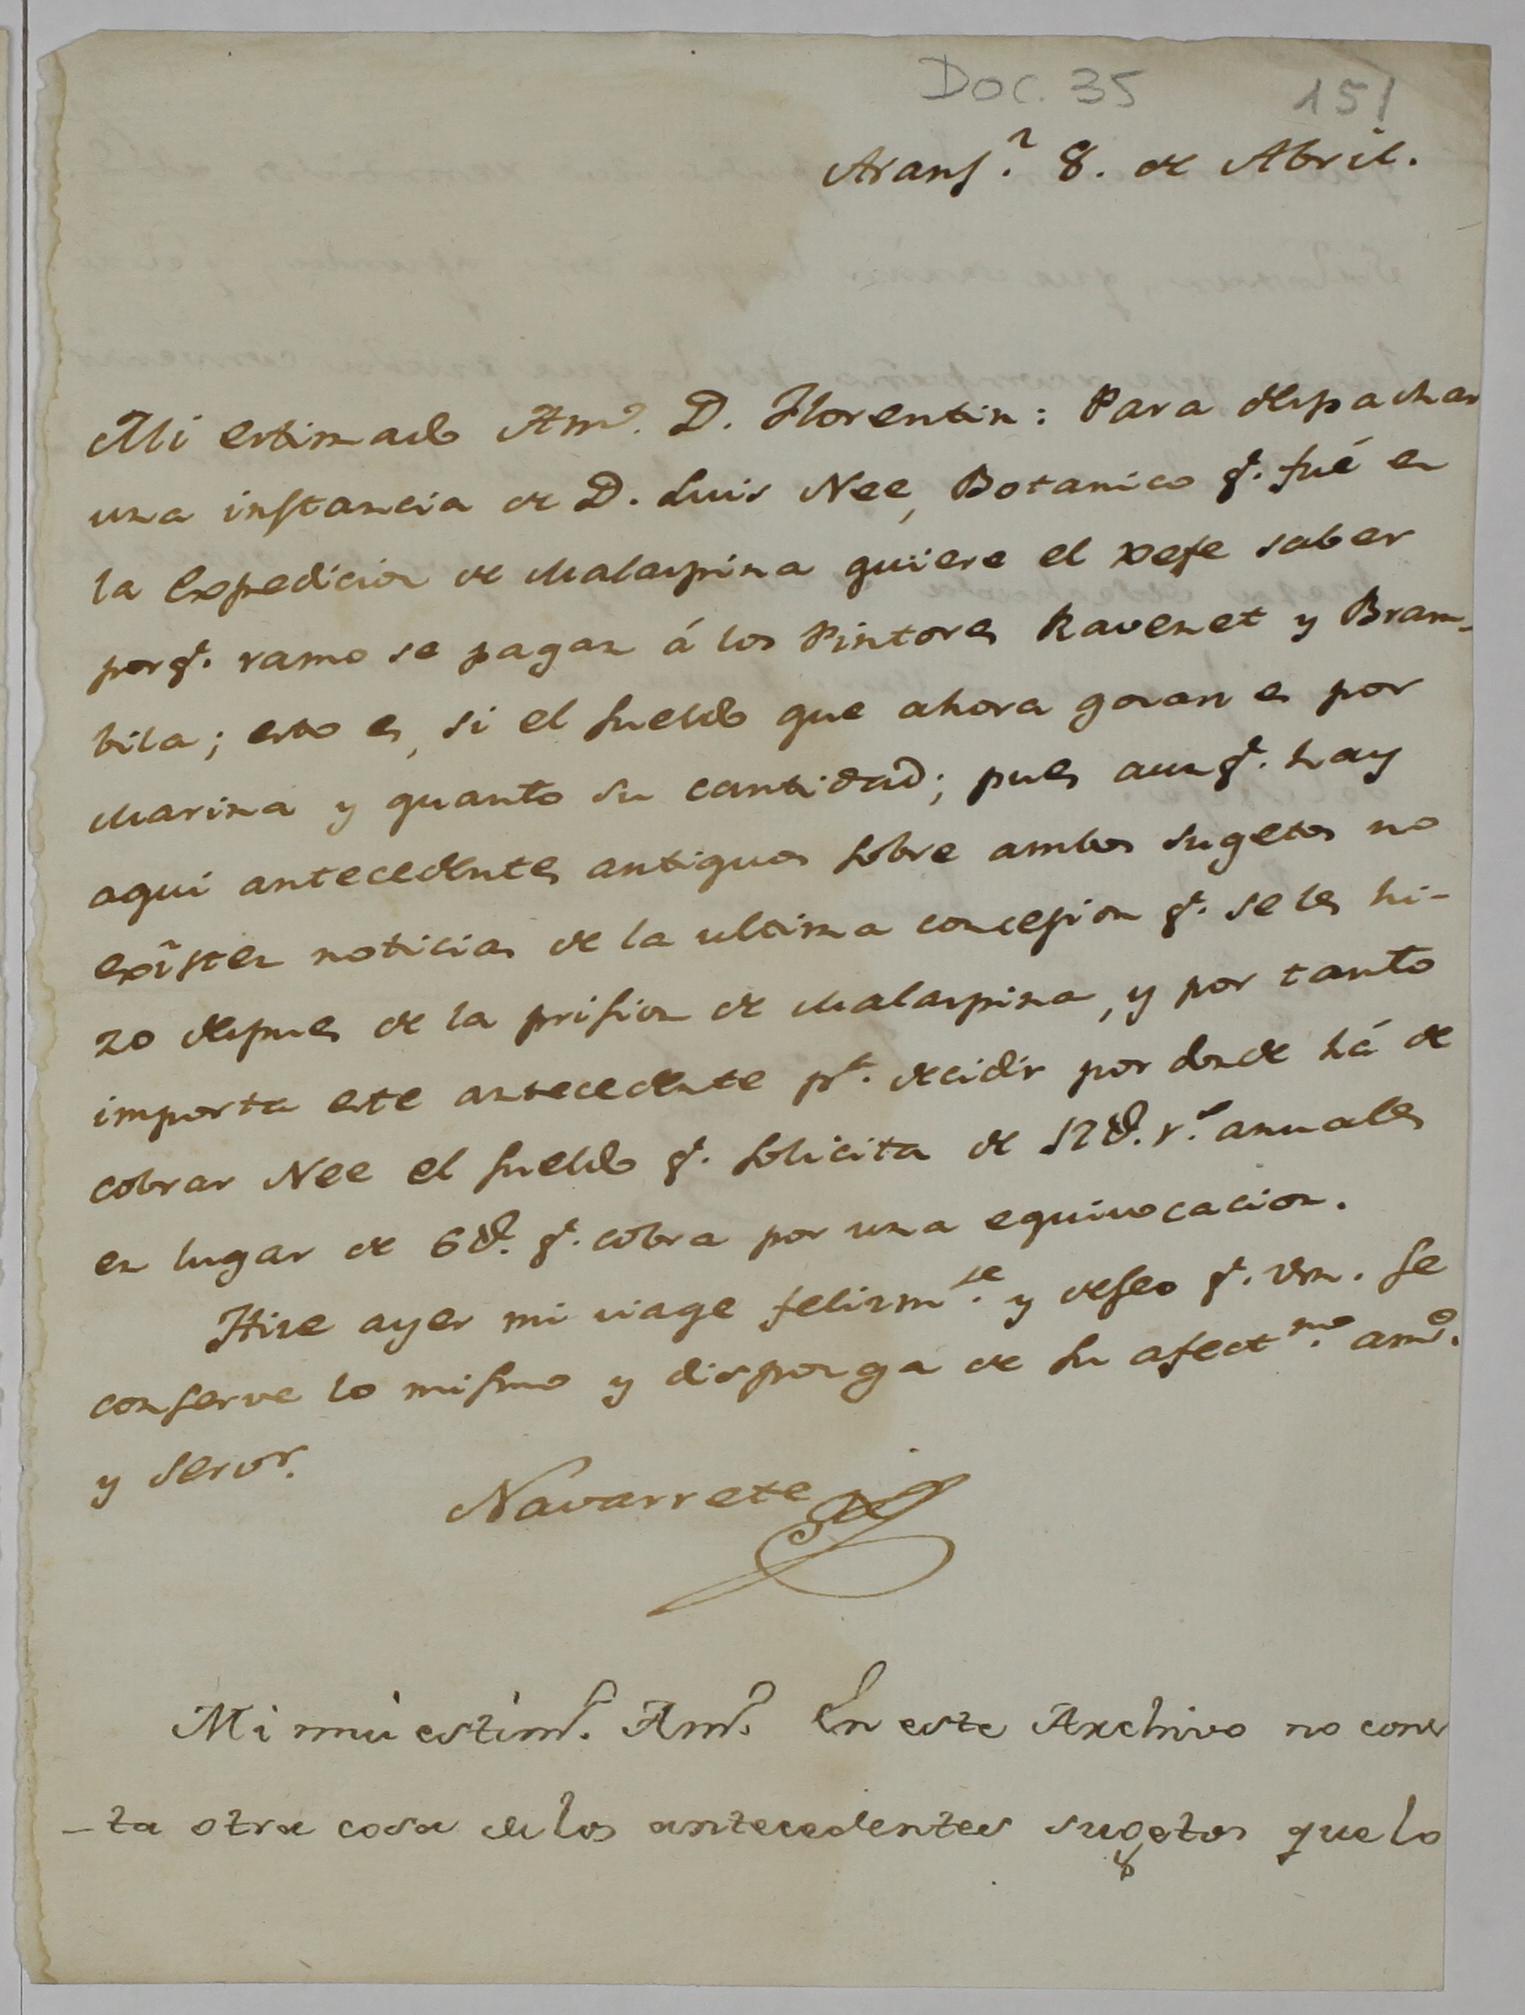 Doc. 35 151
Aranj.z 8. de Abril.
Mi estimado Am.o D. Florentin: Para despachar
una instancia de D. Luis Nee, Botanico q.e fué en
la Expedicion de Malaspina quiere el Xefe saber
porq.e ramo se pagan á los Pintores Ravenet y Bram-
bila; esto es, si el sueldo que ahora gozan es por
Marina y quanto su cantidad; pues aunq.e hay
aqui antecedentes antiguos sobre ambos sugetos no
exîsten noticias de la ultima concesion q.e se les hi-
zo despues de la prision de Malaspina, y por tanto
importa este antecedente p.a decidir por donde há de
cobrar Nee el sueldo q.e solicita de 12@. r.s anuales
en lugar de 6@. q.e cobra por una equivocacion.
Hize ayer mi viage felizm.te y deseo q.e Vm. se
conserve lo mismo y disponga de su afect.mo am.o
y serv.r
Navarrete
Mi mui estim.o Am.o En este Archivo no cons
-ta otra cosa de los antecedentes sugetos que lo